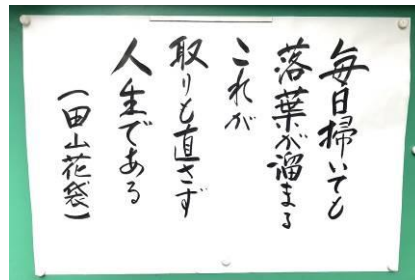 毎日掃いても
落葉が溜まる
これが
取りも直さず
人生である
(田山花袋)